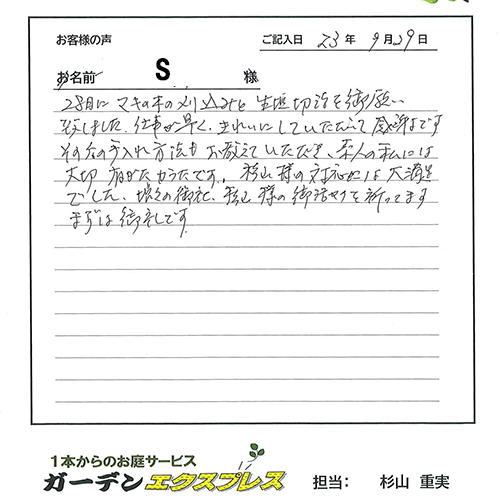 お客様の声
ご記入日 23年 9月29日
お名前 S 様
28日に マキの木の刈込みと 生垣切詰を御願い
致しました、仕事が早く、きれいにしていただいて 感謝です
その后の手入れ方法も お教えていただき、素人の私には
大切 有がたかったです。 杉山様の対応には 大満足
でした、 御社、杉山様の御活やくを祈ってます
まずは御礼です
1本からのお庭サービス
ガーデンエクスプレス
担当: 杉山 重実